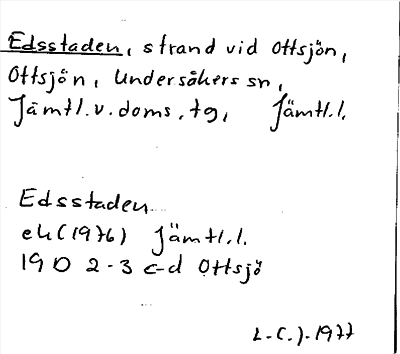 Edsstaden, strand vid Ottsjön,
Ottsjön, Undersåkers sn,
Jämtl.v.doms.tg, Jämtl.l.
Edsstaden
ek (1976) Jämtl.l.
19 D 2-3 c-d Ottsjö
L-C.J-1977